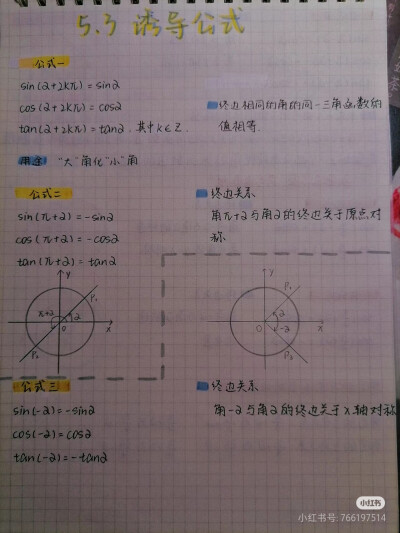 5.3 诱导公式
公式一
sin(2+2kπ)=sin2
cos(2+2kπ)=cos2
tan(2+2kπ)=tan2. 其中k∈Z.
终边相同的角的同一三角函数的
值相等.
用途 "大"角化"小"角
公式二
sin(π+2)=-sin2
cos(π+2)=-cos2
tan(π+2)=tan2
终边关系
角π+2与角2的终边关于原点对
称
y
P₁
π+2
2
O
x
P₂
y
P₁
2
O
-2
x
P₂
公式三
sin(-2)=-sin2
cos(-2)=cos2
tan(-2)=-tan2
终边关系
角-2与角2的终边关于x轴对称
小红书
小红书号: 766197514